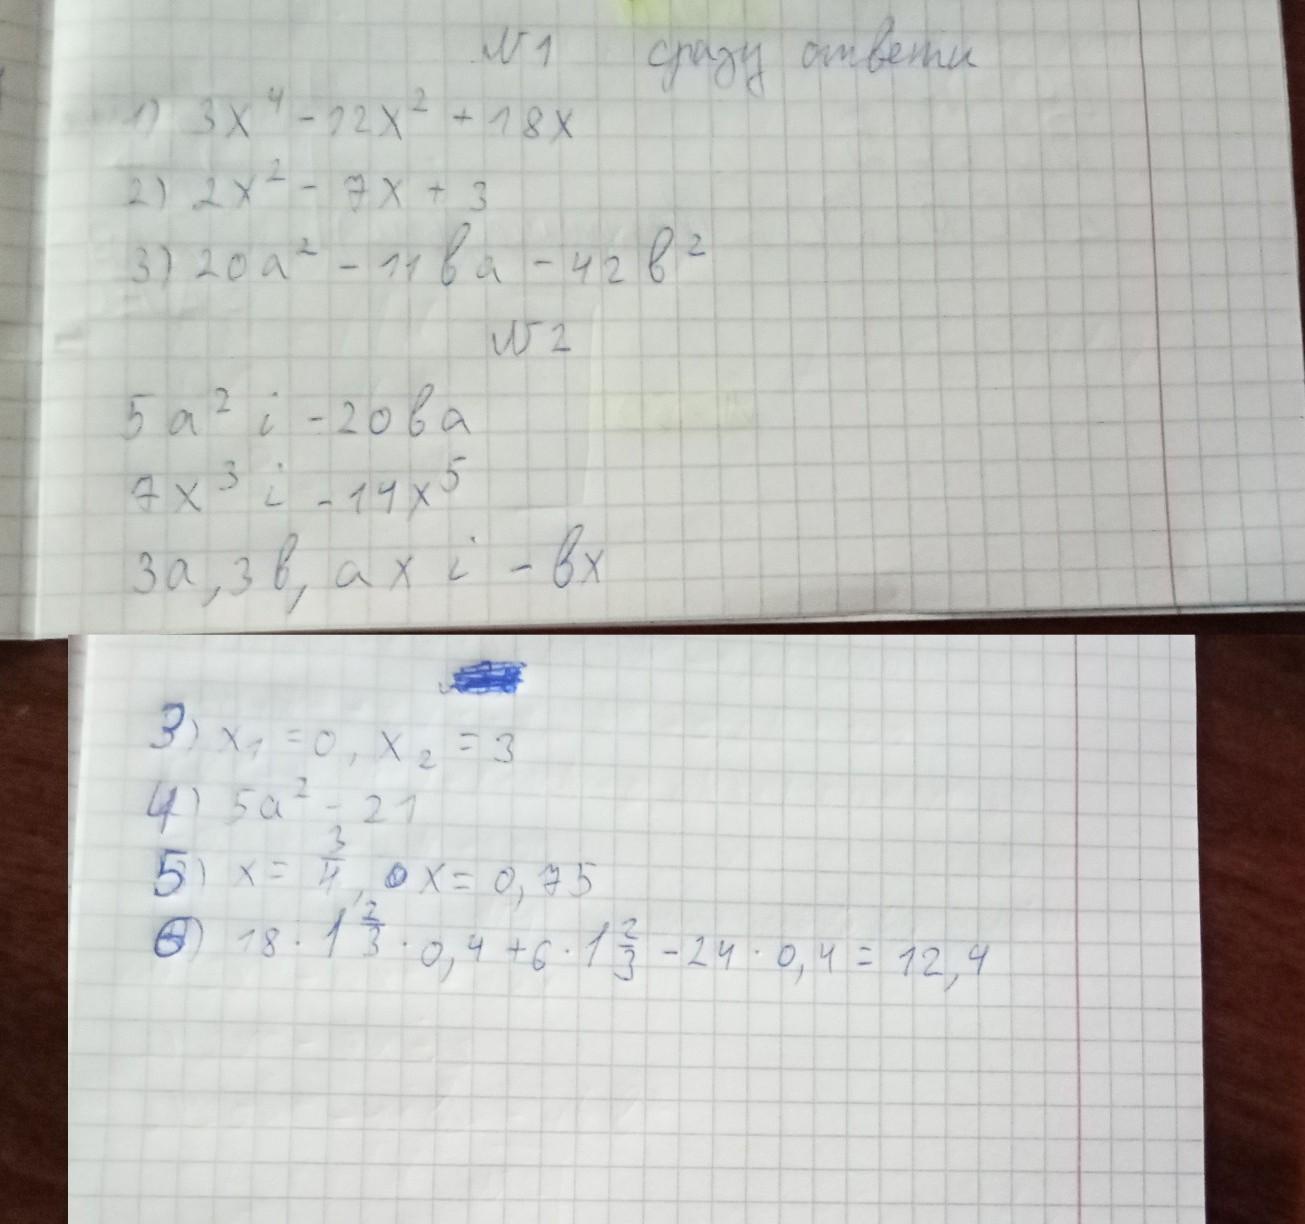 N1 сразу ответи
1) 3x⁴ - 12x² + 18x
2) 2x² - 7x + 3
3) 20a² - 11вa - 42в²
N2
5a² i - 20вa
7x³ i - 14x⁵
3a, 3в, ax i - вx
3) x₁ = 0, x₂ = 3
4) 5a² - 21
5) x = 3/4, x = 0,75
6) 18 · 1 2/3 · 0,4 + 6 · 1 2/3 - 24 · 0,4 = 12,4